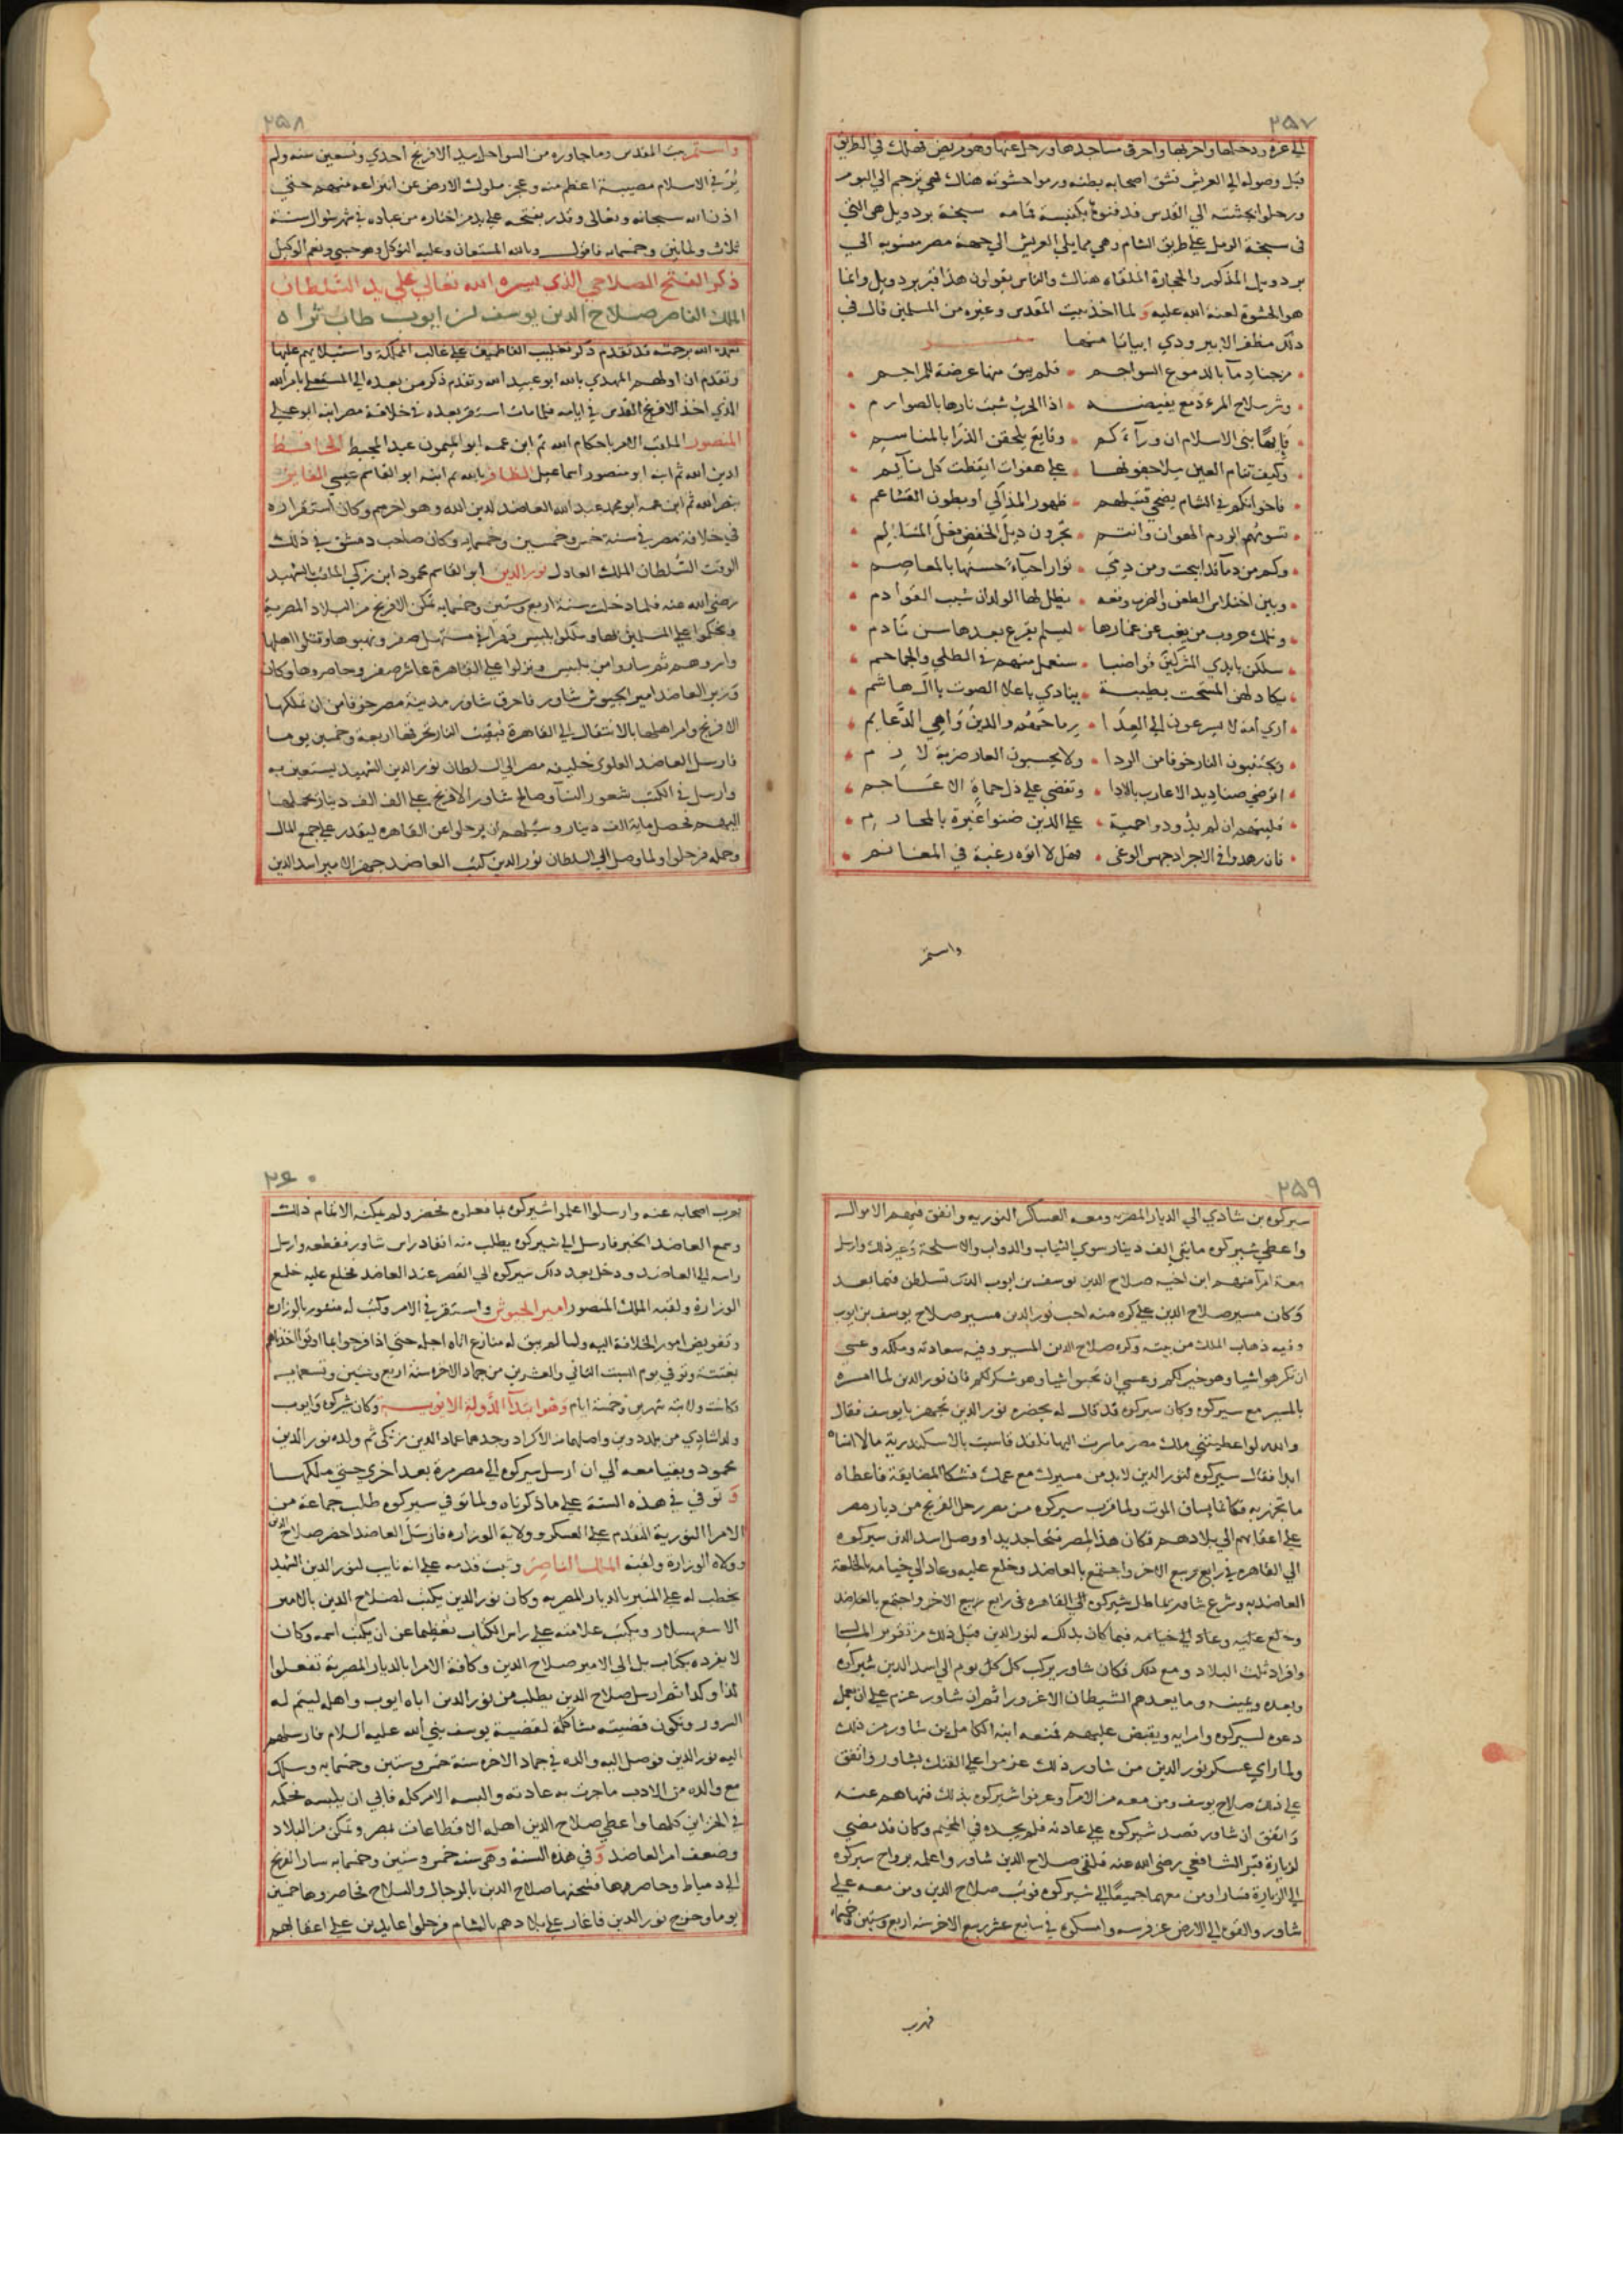 ٢٥٧
الي غزة ودخلها واخربها واحرق مساجدها ورحل عنها وهو مريض فهلك في الطريق
قبل وصوله الي العريش فشق اصحابه بطنه ورموا حشوته هناك فهي ترجم الي اليوم
ورحلوا بجثته الي القدس فدفنوه بكنيسة قمامه سبخة بردويل هي التي
في سبخة الرمل علي طريق الشام وهي مما يلي العريش الي جهة مصر منسوبه الي
بردويل المذكور والحجارة الملقاه هناك والناس يقولون هذا قبر بردويل وانما
هو الحشوة لعنه الله عليه ولما اخذ بيت المقدس وغيره من المسلمين قال في
ذلك مظفر الابيوردي ابياتا منها
مزجنا دمآ بالدموع السواجم فلم يبق منا عرضة للمراجم
وشر سلاح المرء دمع يفيضه اذا الحرب شبت نارها بالصوارم
فايها بنى الاسلام ان ورآءكم وقايع يلحقن الذرا بالمناسم
وكيف تنام العين ملا جفونها علي هفوات ايقظت كل نآيم
فاخوانكم في الشام يضحي قتيلهم ظهور المذاكي او بطون القشاعم
تسومهم الروم الهوان وانتم تجرون ذيل الخفض فعل المسالم
وكم من دمآ قد ابيحت ومن دمي توار احيآء حسنها بالمعاصم
وبين اختلاس الطعن والضرب وقعه يظل لها الولدان شيب القوادم
وتلك حروب من يغب عن غمارها ليسلم يقرع بعدها سن نادم
سللن بايدي المشركين قواضبا ستغمل منهم في الطلي والجماجم
يكاد لهن المستجن بطيبة ينادي باعلا الصوت ياآل هاشم
اري امة لا يسرعون الي العدا رماحهم والدين واهي الدعايم
ويجتنبون النار خوفا من الردا ولا يحسبون العار ضربة لازم
اترضي صناديد الاعارب بالاذا وتغضي علي ذل حماة الاعاجم
فليتهم ان لم يذودوا حمية علي الدين ضنوا غيرة بالمحارم
فان زهدوا في الاجر اذ حمس الوغي فهل لا اتوه رغبة في المغانم
واستمر
٢٥٨
واستمر بيت المقدس وما جاوره من السواحل بيد الافرنج احدي وتسعين سنه ولم
ير في الاسلام مصيبة اعظم منه وعجز ملوك الارض عن انتزاعه منهم حتي
اذن الله سبحانه وتعالي وقدر بفتحه علي يد من اختاره من عباده في شهر شوال سنة
ثلاث وثمانين وخمسمايه فاقول وبالله المستعان وعليه التوكل وهو حسبي ونعم الوكيل
ذكر الفتح الصلاحي الذي يسره الله تعالي علي يد السلطان
الملك الناصر صلاح الدين يوسف بن ايوب طاب ثراه
تغمده الله برحمته قد تقدم ذكر تغليب الفاطميين علي غالب المملكة واستيلايهم عليها
وتقدم ان اولهم المهدي بالله ابو عبيد الله وتقدم ذكر من بعده الي المستعلي بامر الله
الذي اخذ الافرنج القدس في ايامه فلما مات استقر بعده في خلافة مصر ابنه ابو علي
المنصور الملقب الامر باحكام الله ثم ابن عمه ابو الميمون عبد المجيد الحافظ
لدين الله ثم ابنه ابو منصور اسماعيل الظافر بالله ثم ابنه ابو القاسم عيسي الفايز
بنصر الله ثم ابن عمه ابو محمد عبد الله العاضد لدين الله وهو اخرهم وكان استقراره
في خلافة مصر في سنة خمس وخمسين وخمسمايه وكان صاحب دمشق في ذلك
الوقت السلطان الملك العادل نور الدين ابو القاسم محمود ابن زنكي الملقب بالشهيد
رضي الله عنه فلما دخلت سنة اربع وستين وخمسمايه تمكن الافرنج من البلاد المصرية
وتحكموا علي المسلمين بها وملكوا بلبيس قهرا في مستهل صفر ونهبوها وقتلوا اهلها
واسروهم ثم ساروا من بلبيس ونزلوا علي القاهرة عاشر صفر وحاصروها وكان
وزير العاضد امير الجيوش شاور فاحرق شاور مدينة مصر خوفا من ان تملكها
الافرنج وامر اهلها بالانتقال الي القاهرة فبقيت النار تحرقها اربعة وخمسين يوما
فارسل العاضد العلوي خليفة مصر الي السلطان نور الدين الشهيد يستعين به
وارسل في الكتب شعور النسآ وصالح شاور الافرنج علي الف الف دينار يحملها
اليهم فحصل ماية الف دينار وسيلهم ان يرحلوا عن القاهره ليقدر علي جمع المال
وحمله فرحلوا ولما وصل الي السلطان نور الدين كتب العاضد جهز الامير اسد الدين
٢٥٩
شيركوه بن شادي الي الديار المصريه ومعه العساكر النوريه وانفق فيهم الاموال
واعطي شيركوه مايتي الف دينار سوي الثياب والدواب والاسلحة وغير ذلك وارسل
معه امرآ منهم ابن اخيه صلاح الدين يوسف بن ايوب الذي تسلطن فيما بعد
وكان مسير صلاح الدين علي كره منه احب نور الدين مسير صلاح يوسف بن ايوب
وفيه ذهاب الملك من بيته وكره صلاح الدين المسير وفيه سعادته وملكه وعسي
ان تكرهوا شيا وهو خير لكم وعسي ان تحبوا شيا وهو شر لكم فان نور الدين لما امره
بالمسير مع شيركوه وكان شيركوه قد قال له بحضره نور الدين تجهز يا يوسف فقال
والله لو اعطيتني ملك مصر ما سرت اليها فلقد قاسيت بالاسكندرية مالا انساه
ابدا فقال شيركوه لنور الدين لا بد من مسيره مع عمه فشكا المضايقة فاعطاه
ما تجهز به فكانما يساق الموت ولما قرب شيركوه من مصر رحل الفرنج من ديار مصر
علي اعقابهم الي بلادهم فكان هذا لمصر فتحا جديدا ووصل اسد الدين شيركوه
الي القاهره في رابع ربيع الاخر واجتمع بالعاضد وخلع عليه وعاد الي خيامه بالخلعة
العاضديه وشرع شاور يماطل شيركوه الي القاهره في رابع ربيع الاخر واجتمع بالعاضد
وخلع عليه وعاد الي خيامه فيما كان بذله لنور الدين قبل ذلك من تقرير المال
وافراد ثلث البلاد ومع ذلك فكان شاور يركب كل كل يوم الي اسد الدين شيركوه
ويعده ويمنيه وما يعدهم الشيطان الا غرورا ثم ان شاور عزم علي ان يعمل
دعوه لشيركوه وامرايه ويقبض عليهم فمنعه ابنه الكامل بن شاور من ذلك
ولما راي عسكر نور الدين من شاور ذلك عزموا علي الفتك بشاور واتفق
علي ذلك صلاح يوسف ومن معه من الامرآ وعرفوا شيركوه بذلك فنهاهم عنه
واتفق ان شاور قصد شيركوه علي عادته فلم يجده في المخيم وكان قد مضي
لزيارة قبر الشافعي رضي الله عنه فلقي صلاح الدين شاور واعلمه برواح شيركوه
الي الزيارة فسارا ومن معهما جميعا الي شيركوه فوثب صلاح الدين ومن معه علي
شاور والقوه الي الارض عن فرسه وامسكوه في سابع عشر ربيع الاخر سنه اربع وستين وخمسمايه
فهرب
٢٦٠
فهرب اصحابه عنه وارسلوا اعلموا شيركوه بما فعلوه فحضر ولم يمكنه الا اتمام ذلك
وسمع العاضد الخبر فارسل الي شيركوه يطلب منه انفاذ راس شاور فقطعه وارسل
راسه الي العاضد ودخل بعد ذلك شيركوه الي القصر عند العاضد فخلع عليه خلع
الوزارة ولقبه الملك المنصور امير الجيوش واستقر في الامر وكتب له منشور بالوزاره
وتفويض امور الخلافة اليه ولما لم يبق له منازع اتاه اجله حتي اذا فرحوا بما اوتوا اخذناهم
بغتة وتوفي يوم السبت الثاني والعشرين من جماد الاخره سنة اربع وستين وتسعمايه
فكانت ولايته شهرين وخمسة ايام وهو ابتدآ الدولة الايوبية وكان شيركوه وايوب
ولدا شادي من بلد دوين واصلهما من الاكراد وخدما عماد الدين زنكي ثم ولده نور الدين
محمود وبقيا معه الي ان ارسل شيركوه الي مصر مرة بعد اخري حتي ملكها
وتوفي في هذه السنة علي ما ذكرناه ولما توفي شيركوه طلب جماعة من
الامرا النورية التقدم علي العسكر وولاية الوزاره فارسل العاضد احضر صلاح الدين
وولاه الوزارة ولقبه الملك الناصر وثبت قدمه علي انه نايب لنور الدين الشهيد
يخطب له علي المنبر بالديار المصريه وكان نور الدين يكتب لصلاح الدين بالامير
الاسفهسلار ويكتب علامته علي راس الكتاب تعظيما عن ان يكتب اسمه وكان
لا يفرده بكتاب بل الي الامير صلاح الدين وكافة الامرا بالديار المصرية تفعلوا
كذا وكذا ثم ارسل صلاح الدين يطلب من نور الدين اباه ايوب واهله ليتم له
السرور وتكون قضيته مشاكلة لقضية يوسف نبي الله عليه السلام فارسلهم
اليه نور الدين فوصل اليه والده في جماد الاخره سنة خمس وستين وخمسمايه وسلك
مع والده من الادب ما جرت به عادته والبسه الامر كله فابي ان يلبسه فحكمه
في الخزاين كلها واعطي صلاح الدين اهله الاقطاعات بمصر وتمكن من البلاد
وضعف امر العاضد وفي هذه السنة وهي سنة خمس وستين وخمسمايه سار الفرنج
الي دمياط وحاصروها فشحنها صلاح الدين بالرجال والسلاح فحاصروها خمسين
يوما وخرج نور الدين فاغار علي بلادهم بالشام فرحلوا عايدين علي اعقابهم